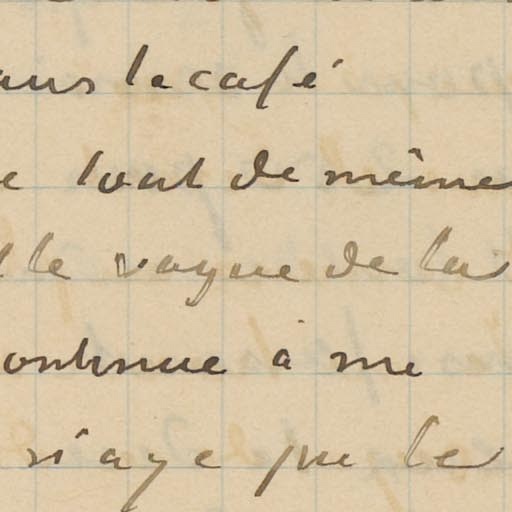 ans le café
e tout de même
lle vague de la
ontinue à me
riage que le